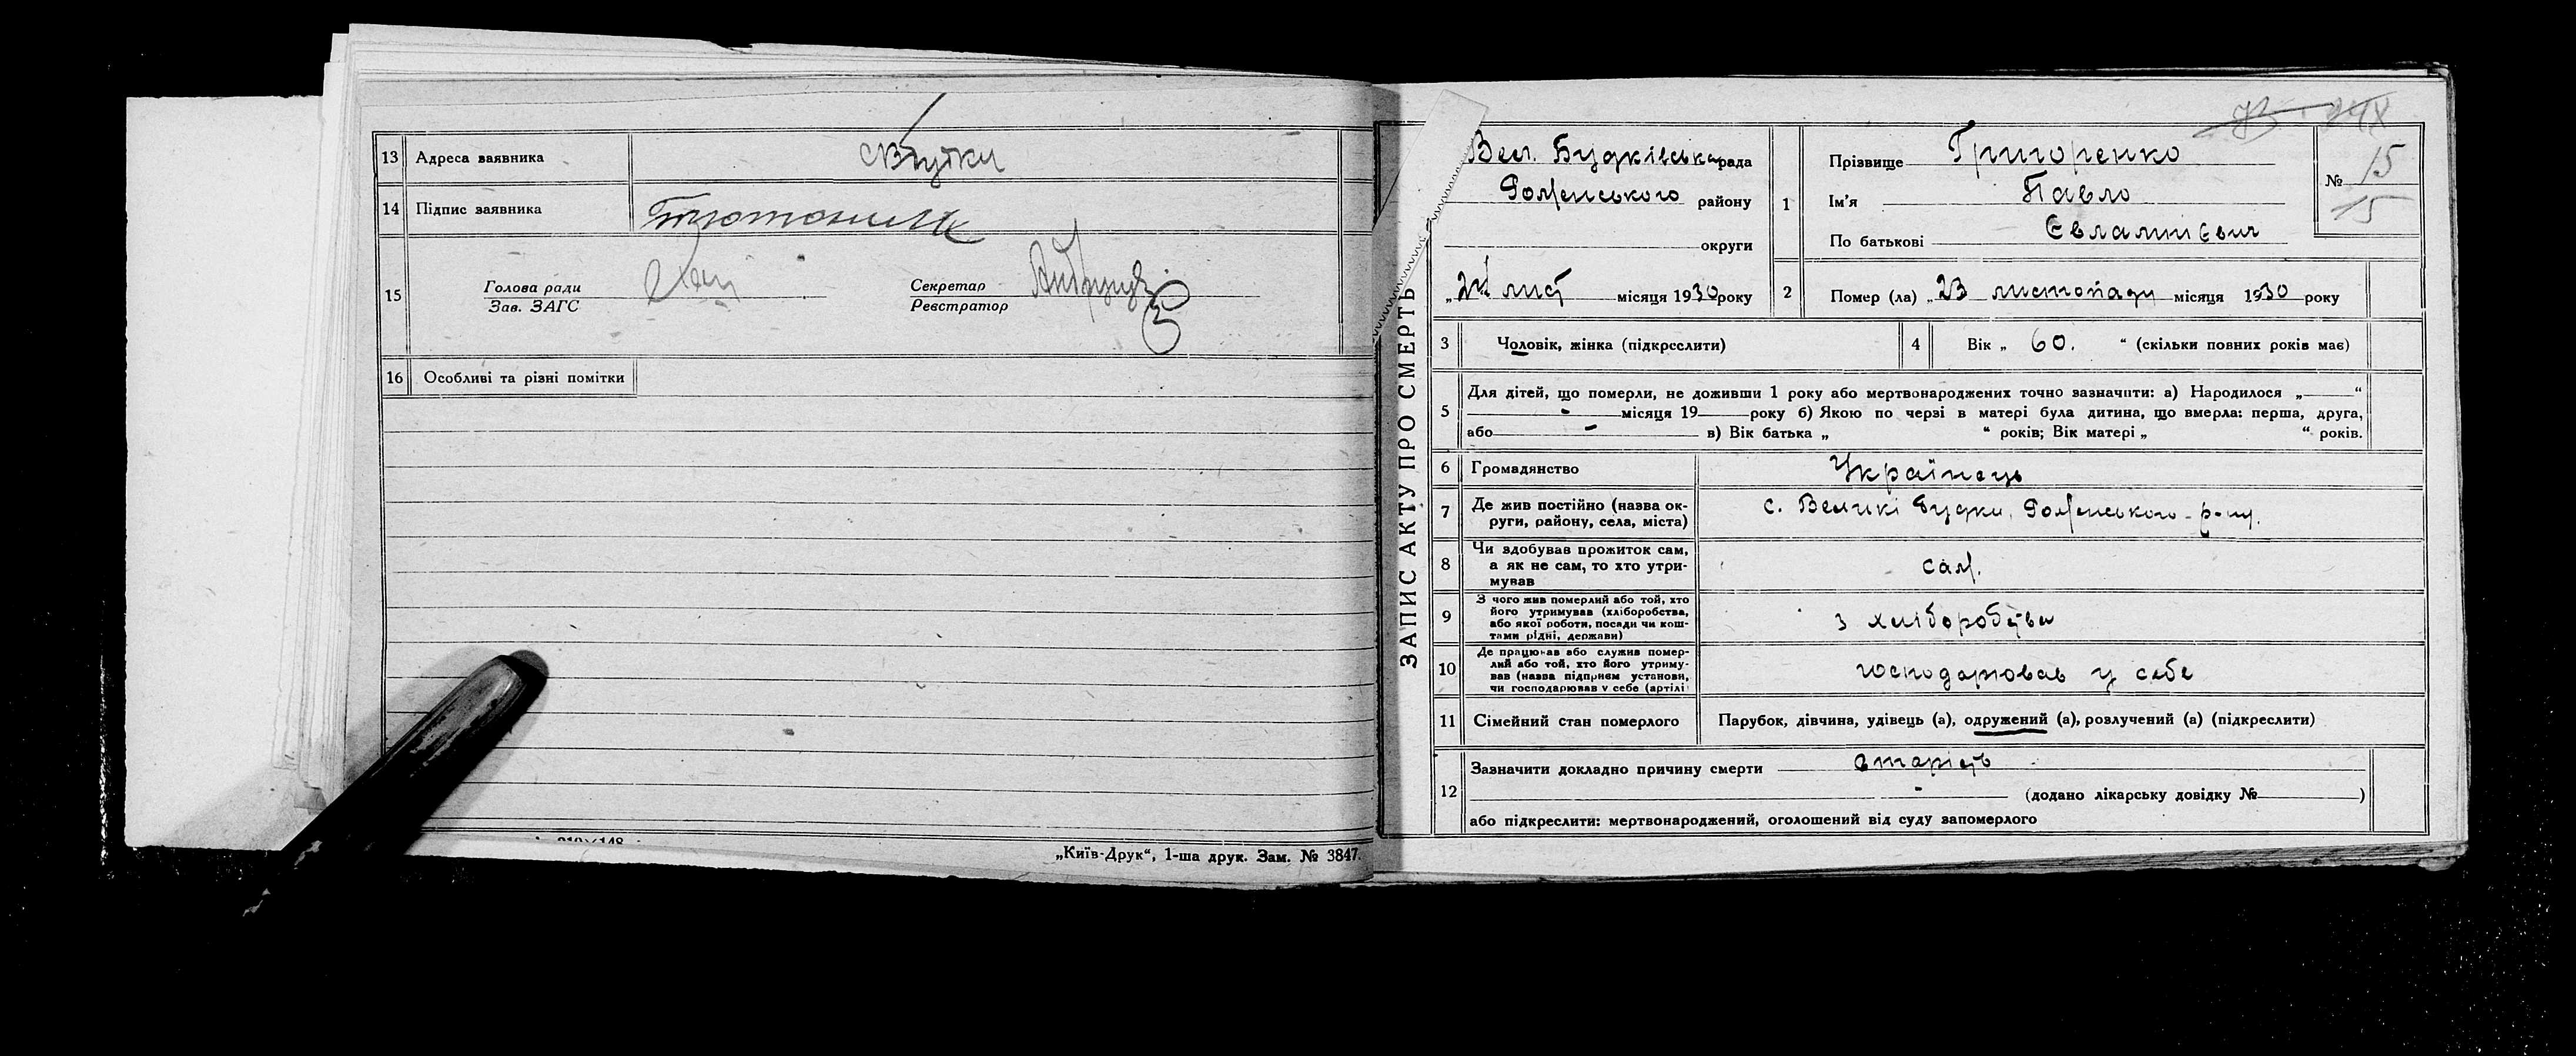 13 Адреса заявника
14 Підпис заявника
15 Голова ради
Зав. ЗАГС
Секретар
Реєстратор
16 Особливі та різні помітки
„Київ-Друк“, 1-ша друк. Зам. № 3847.
ЗАПИС АКТУ ПРО СМЕРТЬ
Вел. Будківська рада
Роменського району
округи
„24 лист місяця 1930 року
1 Прізвище Григоренко
Ім'я Павло
По батькові Євлампієвич
№ 15
15
2 Помер (ла) „23 листопаду місяця 1930 року
3 Чоловік, жінка (підкреслити)
4 Вік „ 60. “ (скільки повних років має)
5 Для дітей, що померли, не доживши 1 року або мертвонароджених точно зазначити: а) Народилося „ “
місяця 19 року б) Якою по черзі в матері була дитина, що вмерла: перша, друга,
або в) Вік батька „ “ років; Вік матері „ “ років.
6 Громадянство Українець
7 Де жив постійно (назва ок-
руги, району, села, міста) с. Великі Будки, Роменського р-ну.
8 Чи здобував прожиток сам,
а як не сам, то хто утри-
мував сам.
9 З чого жив померлий або той, хто
його утримував (хліборобства,
або якої роботи, посади чи кош-
тами рідні, держави) з хліборобства
10 Де працював або служив помер-
лий або той, хто його утриму-
вав (назва підприєм установи,
чи господарював у себе (артілі господарював у себе
11 Сімейний стан померлого Парубок, дівчина, удівець (а), одружений (а), розлучений (а) (підкреслити)
12 Зазначити докладно причину смерти старість
(додано лікарську довідку № )
або підкреслити: мертвонароджений, оголошений від суду запомерлого